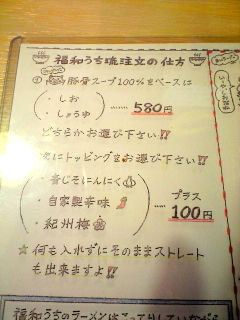 福和うち琉注文の仕方
豚骨スープ100%をベースに
・しお
・しょうゆ
…… 580円
どちらかお選び下さい!!
次にトッピングをお選び下さい!!
・青じそにんにく
・自家製辛味
・紀州梅
プラス
…… 100円
☆何も入れずにそのままストレート
も出来ますよ!!
福和うちのラーメンはこってりしていながら